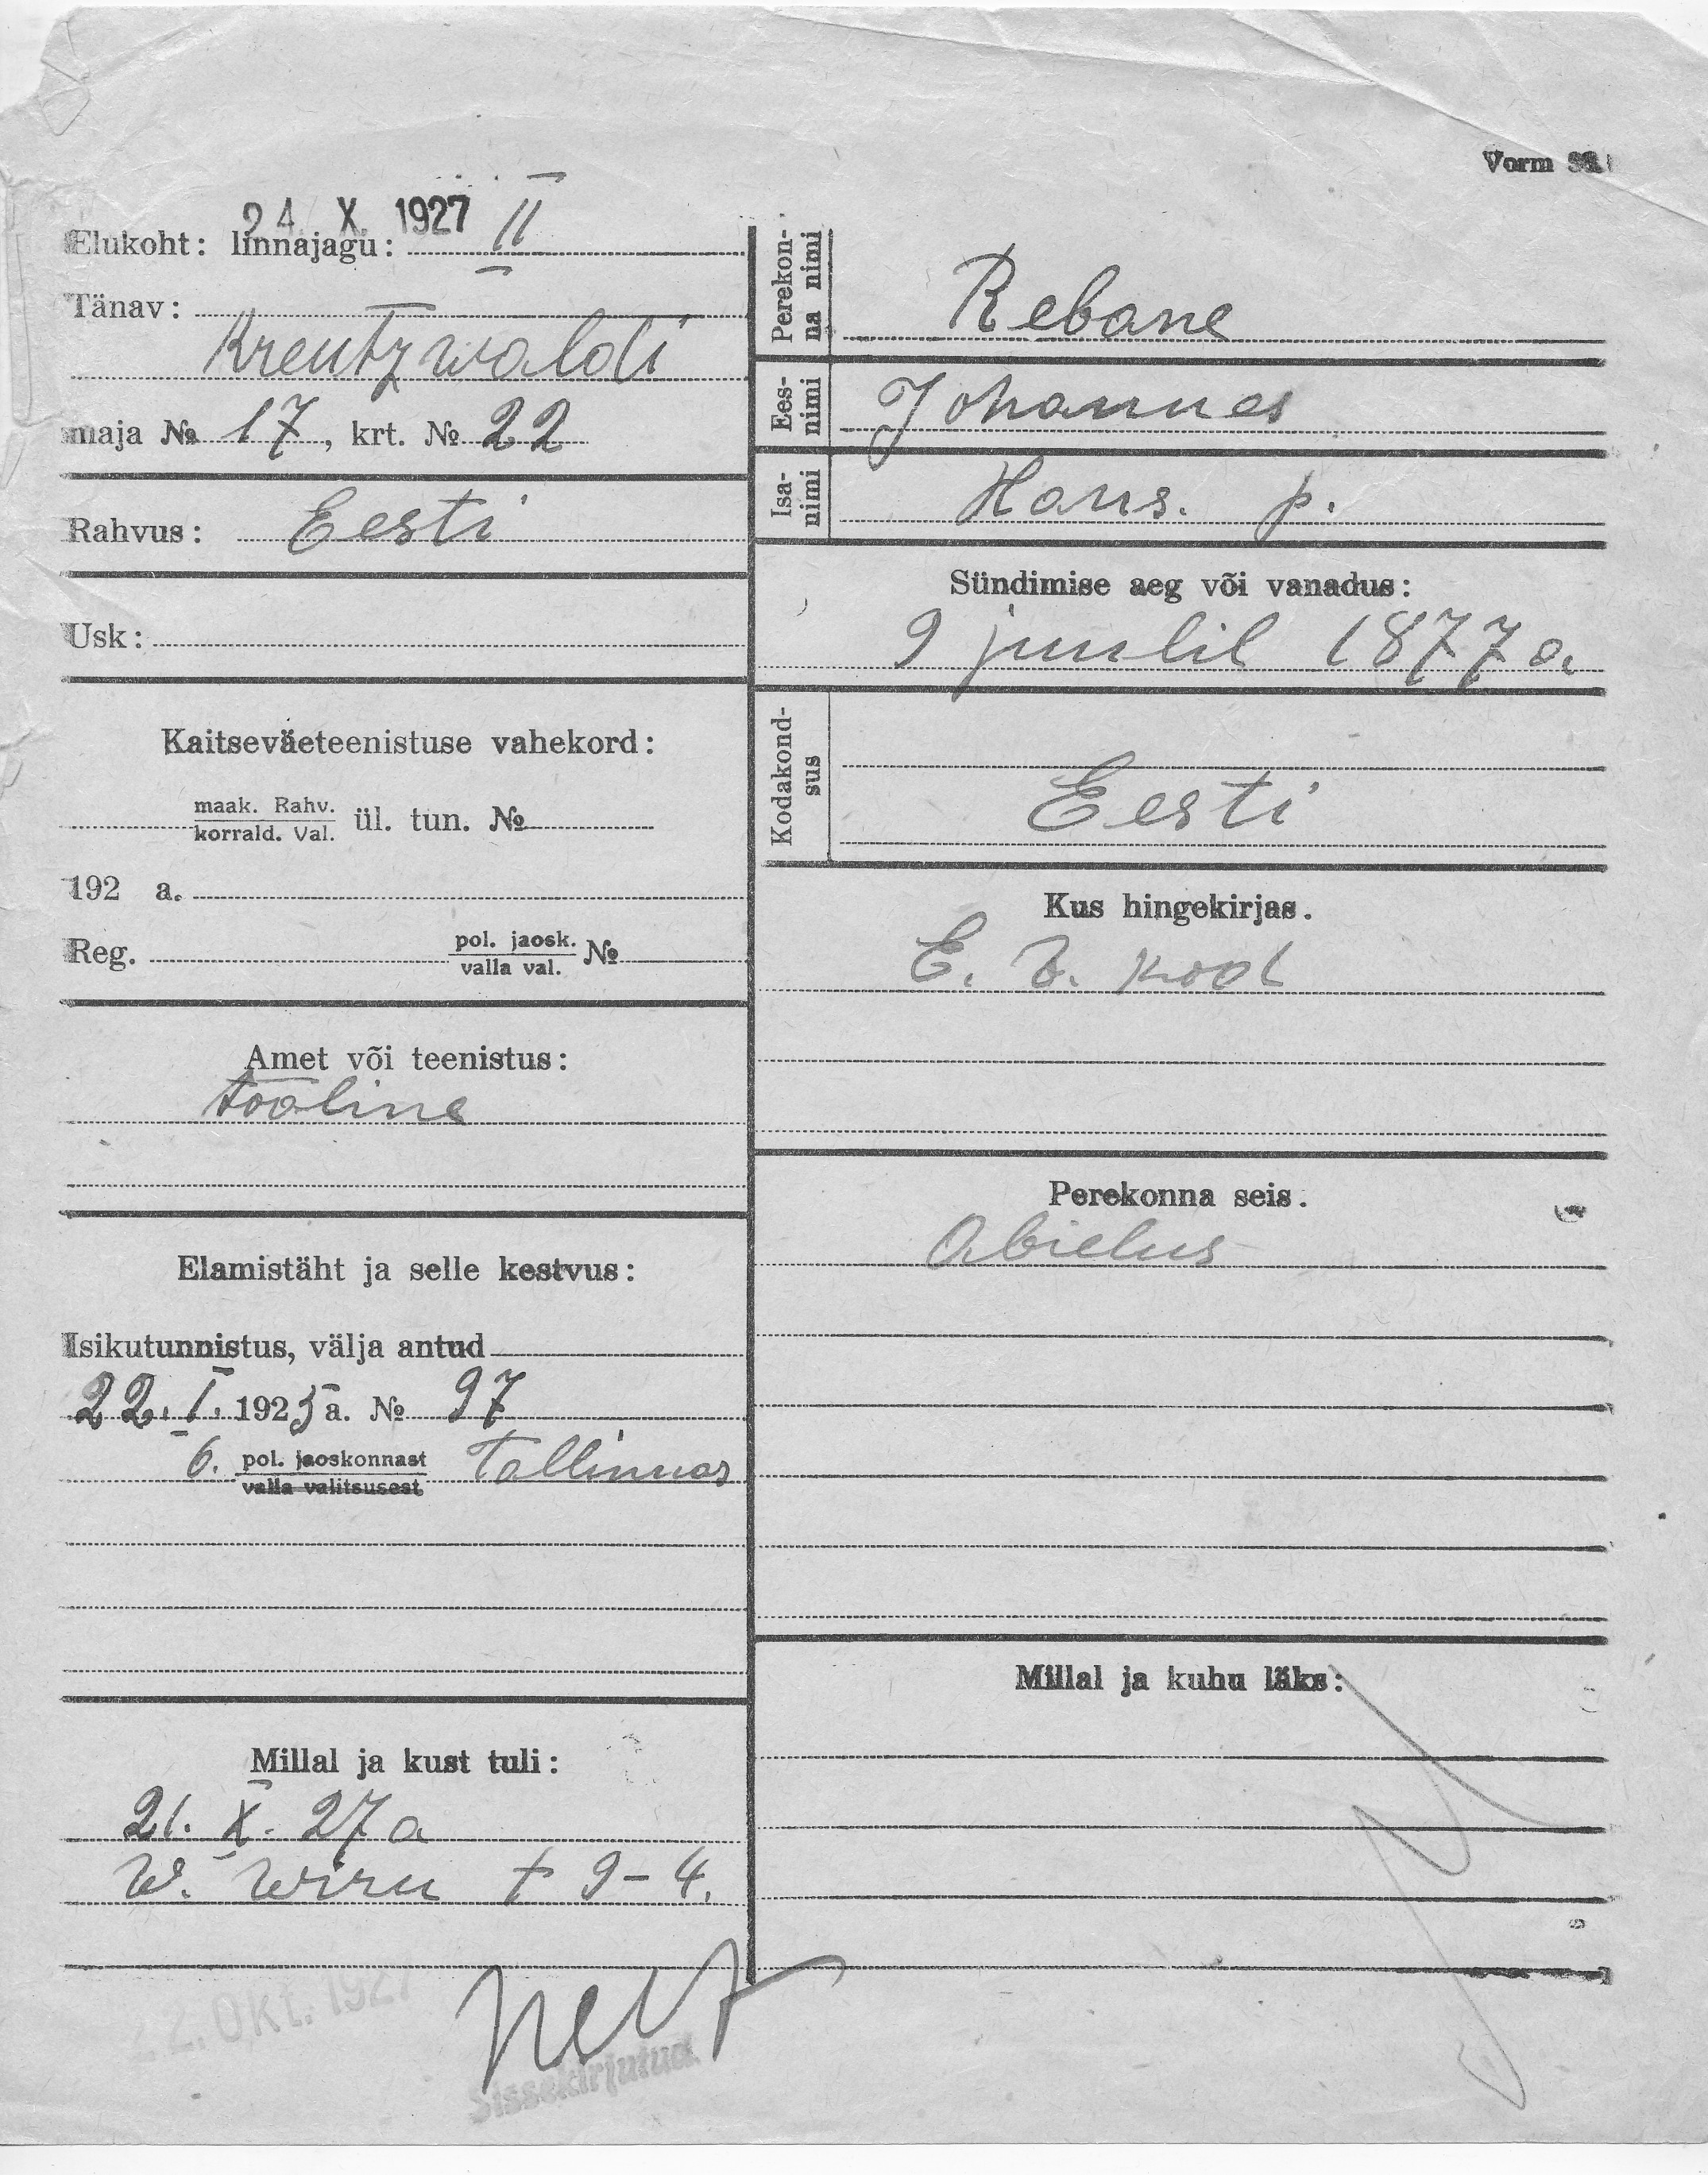 Vorm
24. X. 1927
Elukoht: linnajagu: II
Tänav:
Kreutzwaldi
maja № 17, krt. № 22
Rahvus: Eesti
Usk:
Kaitseväeteenistuse vahekord:
maak. Rahv.
korrald. Val. ül. tun. №
192 a.
Reg. pol. jaosk.
valla val. №
Amet või teenistus:
tööline
Elamistäht ja selle kestvus:
Isikutunnistus, välja antud
22. I. 1925 a. № 97
6. pol. jaoskonnast Tallinnas
valla valitsusest
Millal ja kust tuli:
21. X. 27 a
W. Wiru t 9-4.
22. OKT. 1927
Sissekirjutud.
Perekon-
na nimi
Rebane
Ees-
nimi
Johannes
Isa-
nimi
Hans. p.
Sündimise aeg või vanadus:
9 juulil 1877 a.
Kodakond-
sus
Eesti
Kus hingekirjas.
E. V. kod
Perekonna seis.
Abielus
Millal ja kuhu läks: